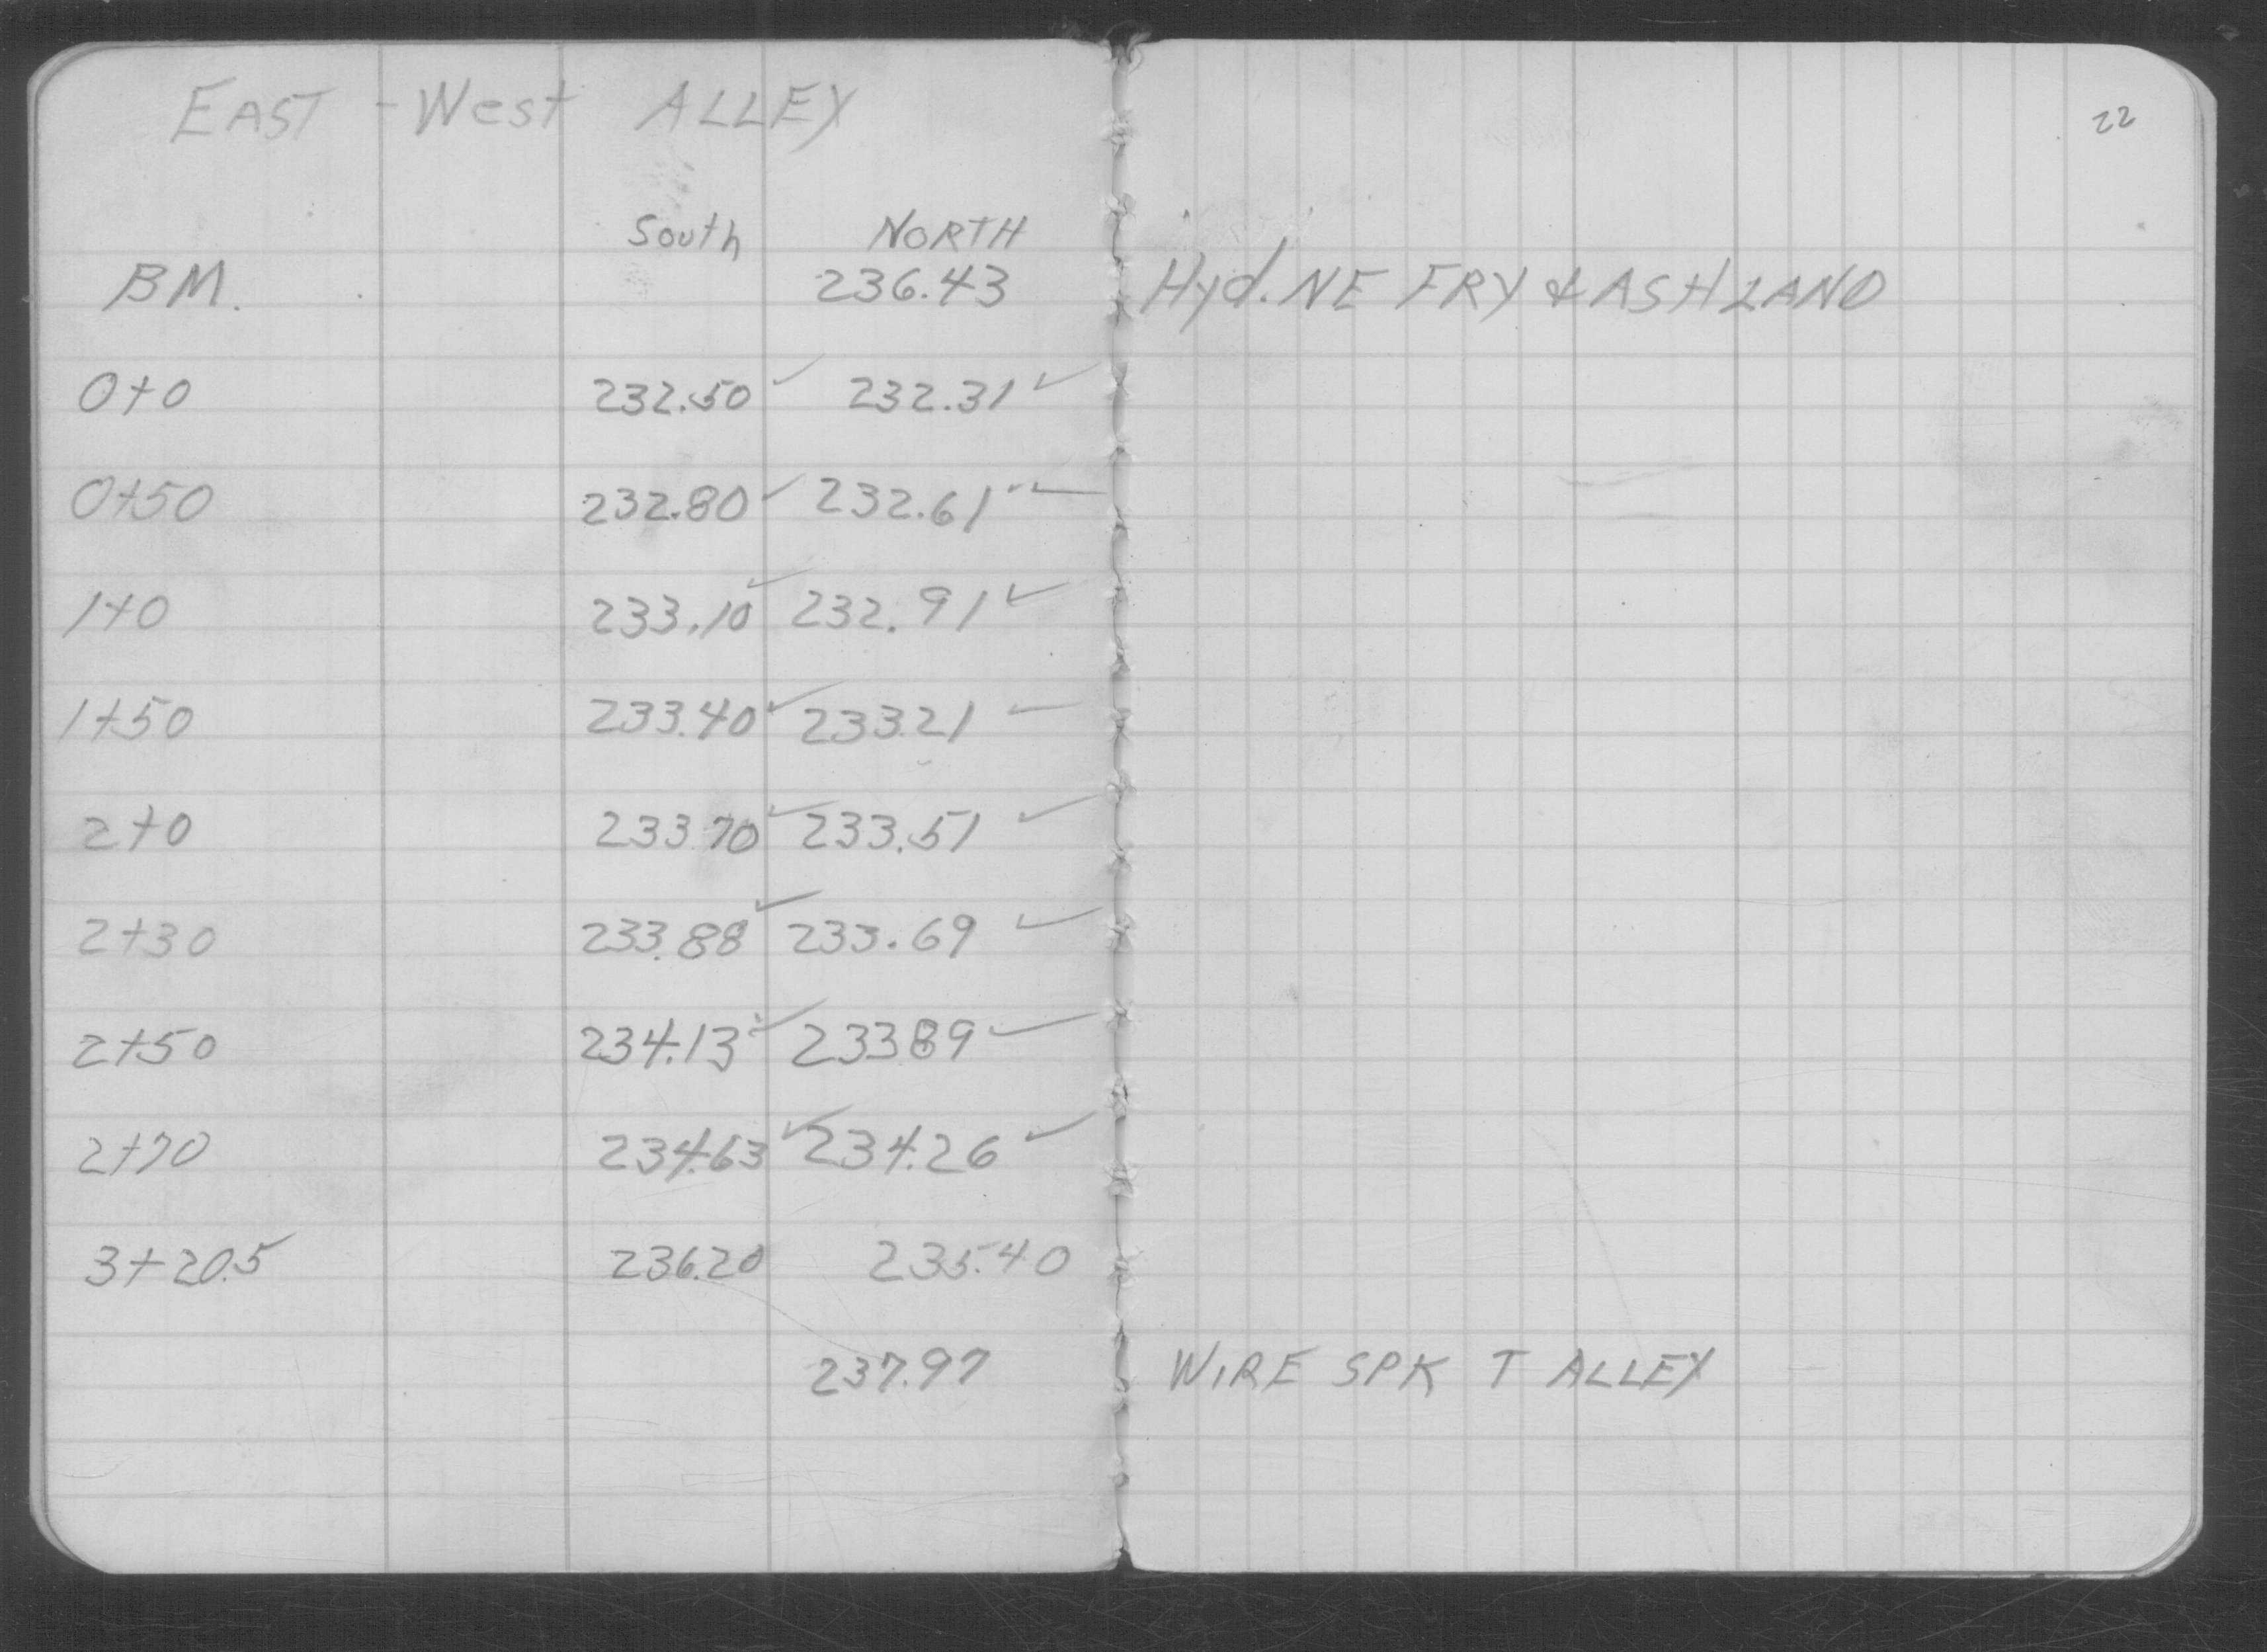 EAST - West ALLEY
22
South NORTH
BM. 236.43 Hyd. NE FRY & ASHLAND
0+0 232.50 ✓ 232.31 ✓
0+50 232.80 ✓ 232.61 ✓
1+0 233.10 ✓ 232.91 ✓
1+50 233.40 ✓ 233.21 ✓
2+0 233.70 ✓ 233.51 ✓
2+30 233.88 ✓ 233.69 ✓
2+50 234.13 ✓ 233.89 ✓
2+70 234.63 ✓ 234.26 ✓
3+20.5 236.20 235.40
237.97 WIRE SPK T ALLEY